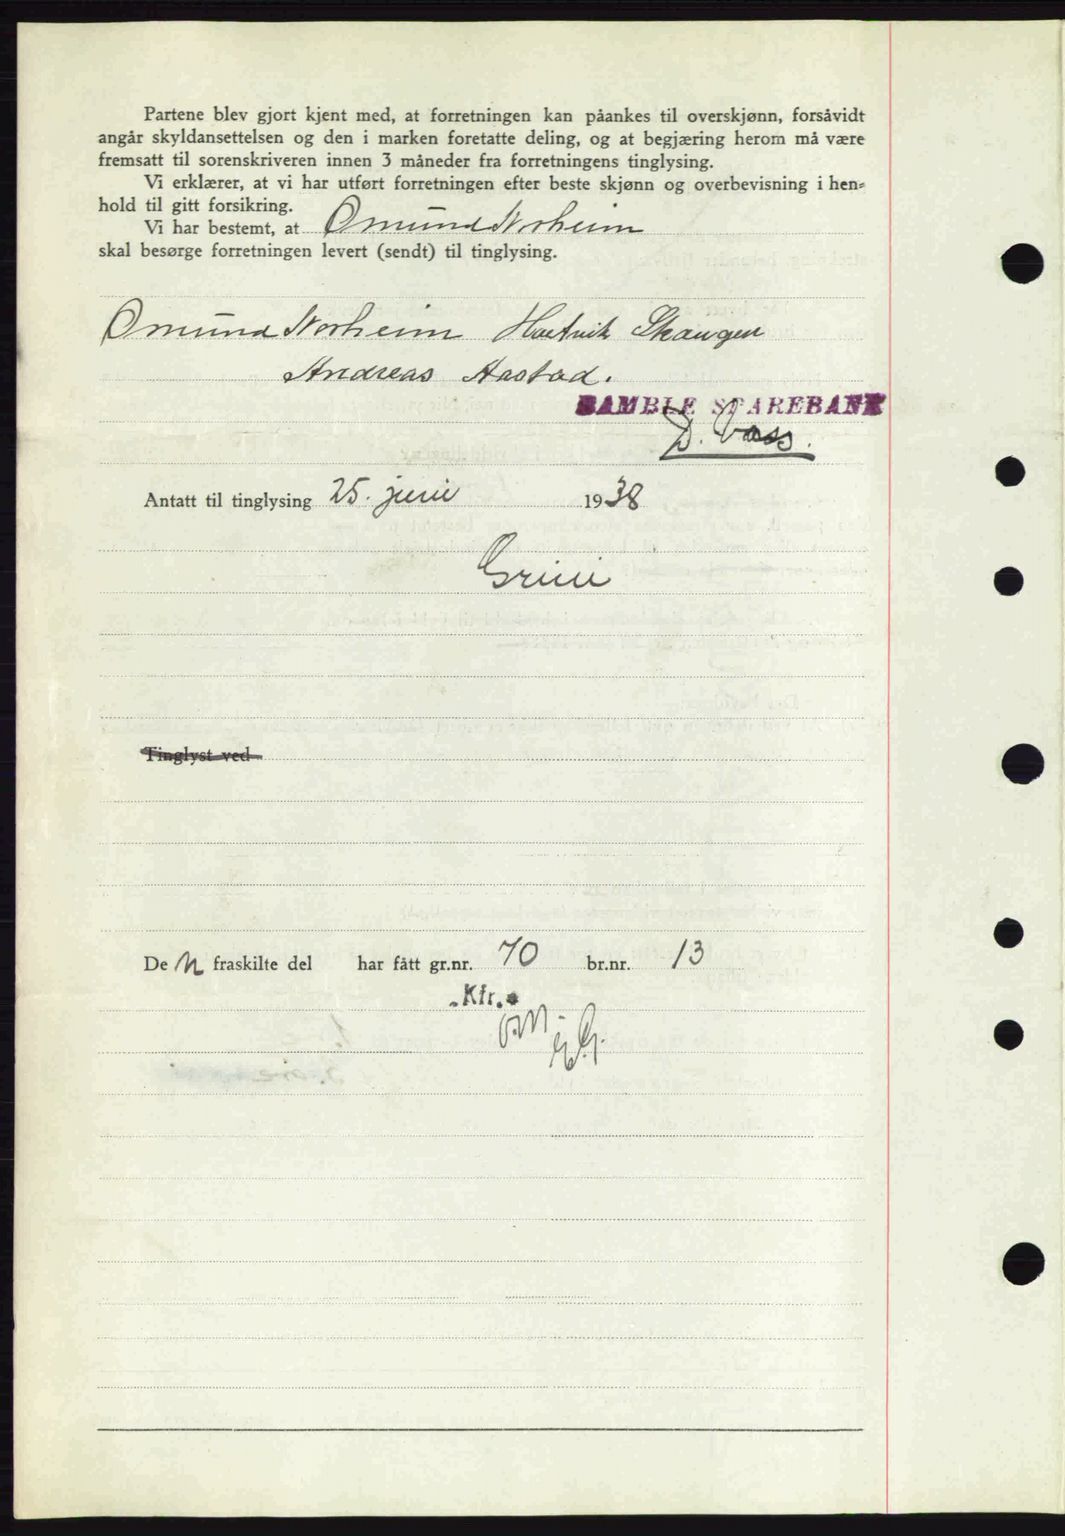 Partene blev gjort kjent med, at forretningen kan påankes til overskjønn, forsåvidt
angår skyldansettelsen og den i marken foretatte deling, og at begjæring herom må være
fremsatt til sorenskriveren innen 3 måneder fra forretningens tinglysing.
Vi erklærer, at vi har utført forretningen efter beste skjønn og overbevisning i hen-
hold til gitt forsikring.
Vi har bestemt, at Omund Norheim
skal besørge forretningen levert (sendt) til tinglysing.
Omund Norheim Hartvik Skaugen
Andreas Aastad.
BAMBLE SPAREBANK
D. Vass.
Antatt til tinglysing 25. juni 1938
Grini
Tinglyst ved
De n fraskilte del har fått gr.nr. 70 br.nr. 13
Kfr.